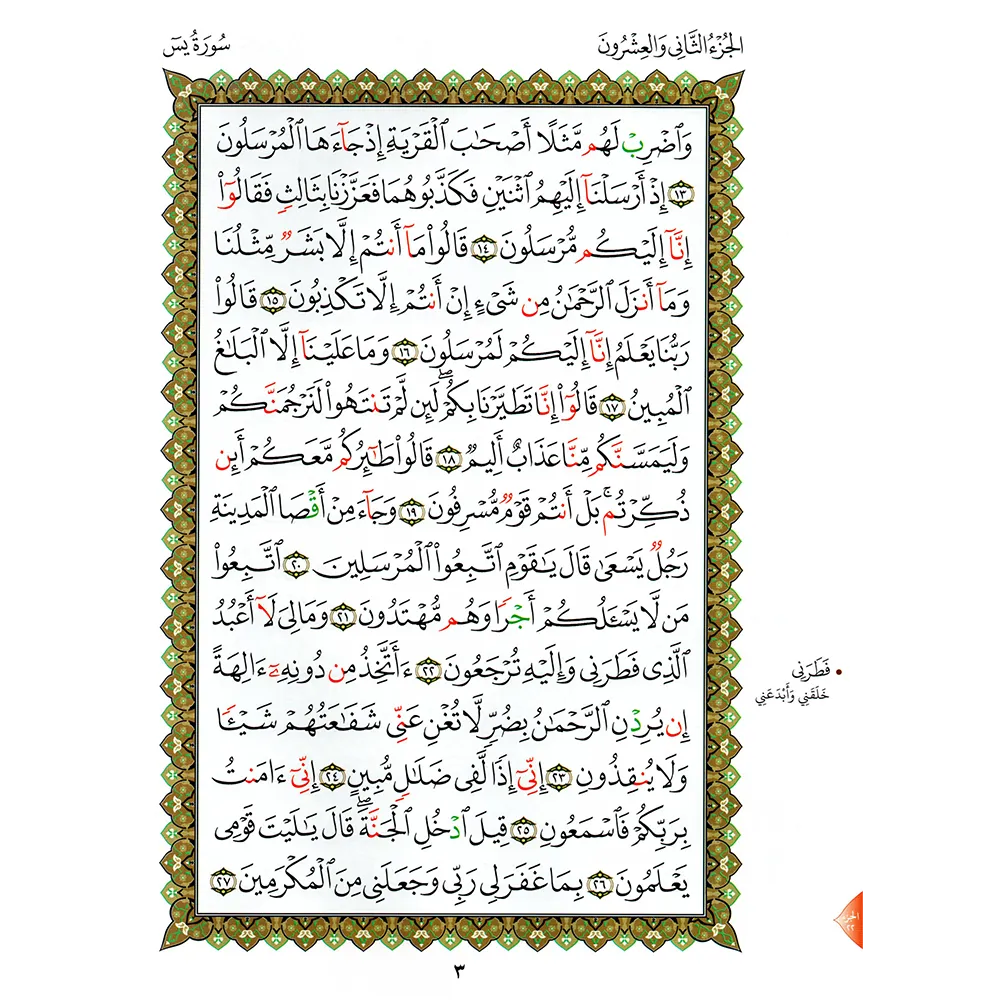 الجُزْءُ الثَّانِي وَالعِشْرُونَ
سُورَةُ يسٓ
وَٱضْرِبْ لَهُم مَّثَلًا أَصْحَٰبَ ٱلْقَرْيَةِ إِذْ جَآءَهَا ٱلْمُرْسَلُونَ
١٣ إِذْ أَرْسَلْنَآ إِلَيْهِمُ ٱثْنَيْنِ فَكَذَّبُوهُمَا فَعَزَّزْنَا بِثَالِثٍ فَقَالُوٓا۟
إِنَّآ إِلَيْكُم مُّرْسَلُونَ ١٤ قَالُوا۟ مَآ أَنتُمْ إِلَّا بَشَرٌ مِّثْلُنَا
وَمَآ أَنزَلَ ٱلرَّحْمَٰنُ مِن شَىْءٍ إِنْ أَنتُمْ إِلَّا تَكْذِبُونَ ١٥ قَالُوا۟
رَبُّنَا يَعْلَمُ إِنَّآ إِلَيْكُمْ لَمُرْسَلُونَ ١٦ وَمَا عَلَيْنَآ إِلَّا ٱلْبَلَٰغُ
ٱلْمُبِينُ ١٧ قَالُوٓا۟ إِنَّا تَطَيَّرْنَا بِكُمْ ۖ لَئِن لَّمْ تَنتَهُوا۟ لَنَرْجُمَنَّكُمْ
وَلَيَمَسَّنَّكُم مِّنَّا عَذَابٌ أَلِيمٌ ١٨ قَالُوا۟ طَٰٓئِرُكُم مَّعَكُمْ ۚ أَئِن
ذُكِّرْتُم ۚ بَلْ أَنتُمْ قَوْمٌ مُّسْرِفُونَ ١٩ وَجَآءَ مِنْ أَقْصَا ٱلْمَدِينَةِ
رَجُلٌ يَسْعَىٰ قَالَ يَٰقَوْمِ ٱتَّبِعُوا۟ ٱلْمُرْسَلِينَ ٢٠ ٱتَّبِعُوا۟
مَن لَّا يَسْـَٔلُكُمْ أَجْرًا وَهُم مُّهْتَدُونَ ٢١ وَمَا لِىَ لَآ أَعْبُدُ
ٱلَّذِى فَطَرَنِى وَإِلَيْهِ تُرْجَعُونَ ٢٢ ءَأَتَّخِذُ مِن دُونِهِۦٓ ءَالِهَةً
إِن يُرِدْنِ ٱلرَّحْمَٰنُ بِضُرٍّ لَّا تُغْنِ عَنِّى شَفَٰعَتُهُمْ شَيْـًٔا
وَلَا يُنقِذُونِ ٢٣ إِنِّىٓ إِذًا لَّفِى ضَلَٰلٍ مُّبِينٍ ٢٤ إِنِّىٓ ءَامَنتُ
بِرَبِّكُمْ فَٱسْمَعُونِ ٢٥ قِيلَ ٱدْخُلِ ٱلْجَنَّةَ ۖ قَالَ يَٰلَيْتَ قَوْمِى
يَعْلَمُونَ ٢٦ بِمَا غَفَرَ لِى رَبِّى وَجَعَلَنِى مِنَ ٱلْمُكْرَمِينَ ٢٧
• فَطَرَنِى
خَلَقَنِي وَأَبْدَعَنِي
الجزء
٢٢
٣